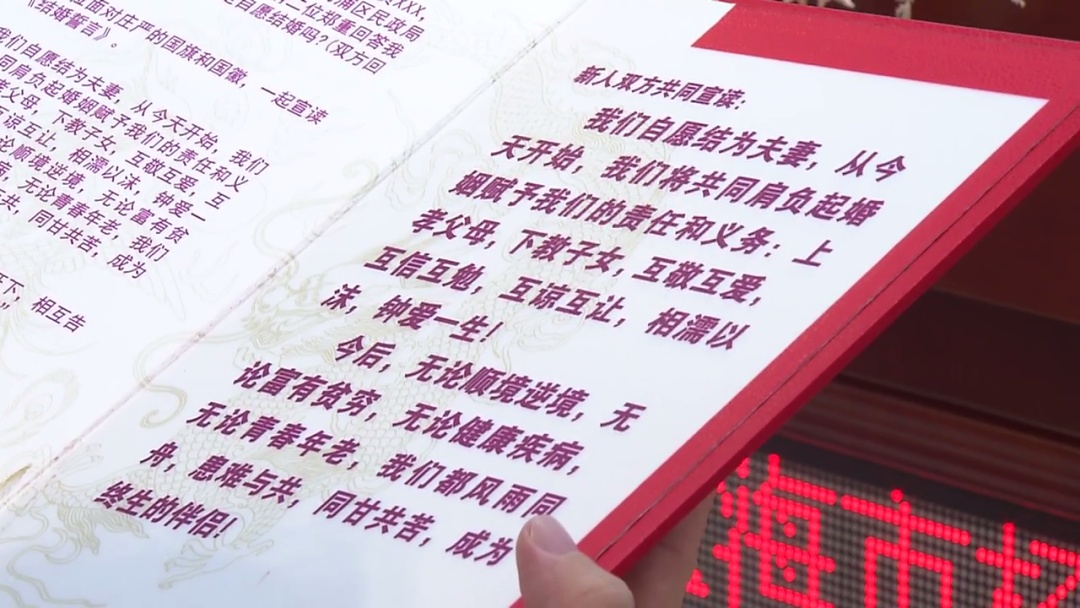 XXX,
浦区民政局
二位郑重回答我
是自愿结婚吗?(双方回
面对庄严的国旗和国徽，一起宣读
《结婚誓言》。
我们自愿结为夫妻，从今天开始，我们
同肩负起婚姻赋予我们的责任和义
孝父母，下教子女，互敬互爱，互
互谅互让，相濡以沫，钟爱一
论顺境逆境，无论富有贫
，无论青春年老，我们
共，同甘共苦，成为
下，相互告
新人双方共同宣读：
我们自愿结为夫妻，从今
天开始，我们将共同肩负起婚
姻赋予我们的责任和义务：上
孝父母，下教子女，互敬互爱，
互信互勉，互谅互让，相濡以
沫，钟爱一生！
今后，无论顺境逆境，无
论富有贫穷，无论健康疾病，
无论青春年老，我们都风雨同
舟，患难与共，同甘共苦，成为
终生的伴侣！
海市